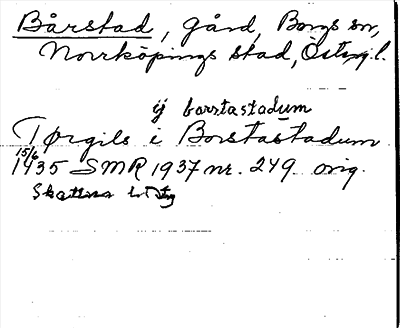 Bårstad, gård, Borgs sn,
Norrköpings stad, Östergl.
ij borstastadum
Torgils i Borstastadum
15/6
1435 SMR 1937 nr. 249 orig.